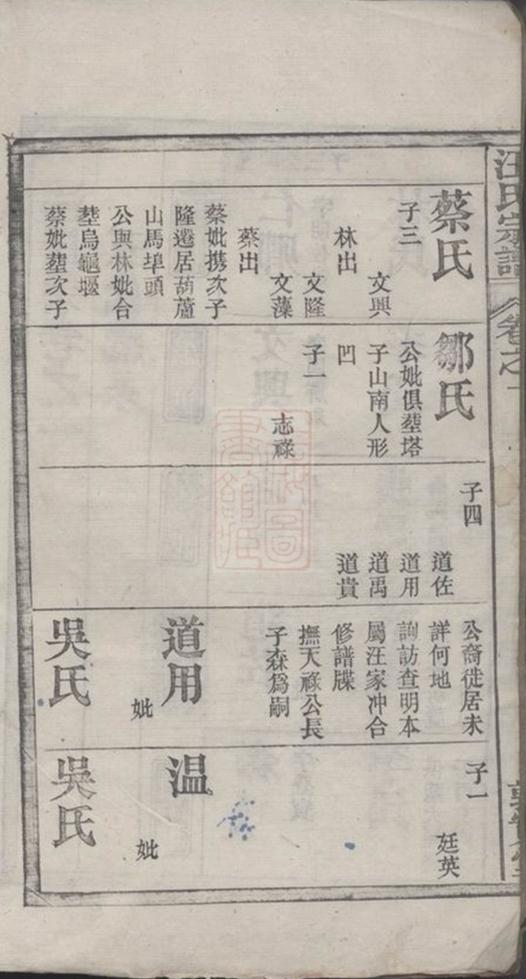 汪氏宗譜
卷之一
蔡氏
子三
文興
林出
文隆
文藻
蔡出
蔡妣携次子
隆遷居葫蘆
山馬埠頭
公與林妣合
塟烏龜堰
蔡妣塟次子
鄒氏
公妣俱塟塔
子山南人形
凹
子一
志祿
子四
道佐
道用
道禹
道貴
公裔徙居未
詳何地
詢訪查明本
屬汪家冲合
修譜牒
撫天祿公長
子森為嗣
道用
妣
吳氏
子一
廷英
温
妣
吳氏